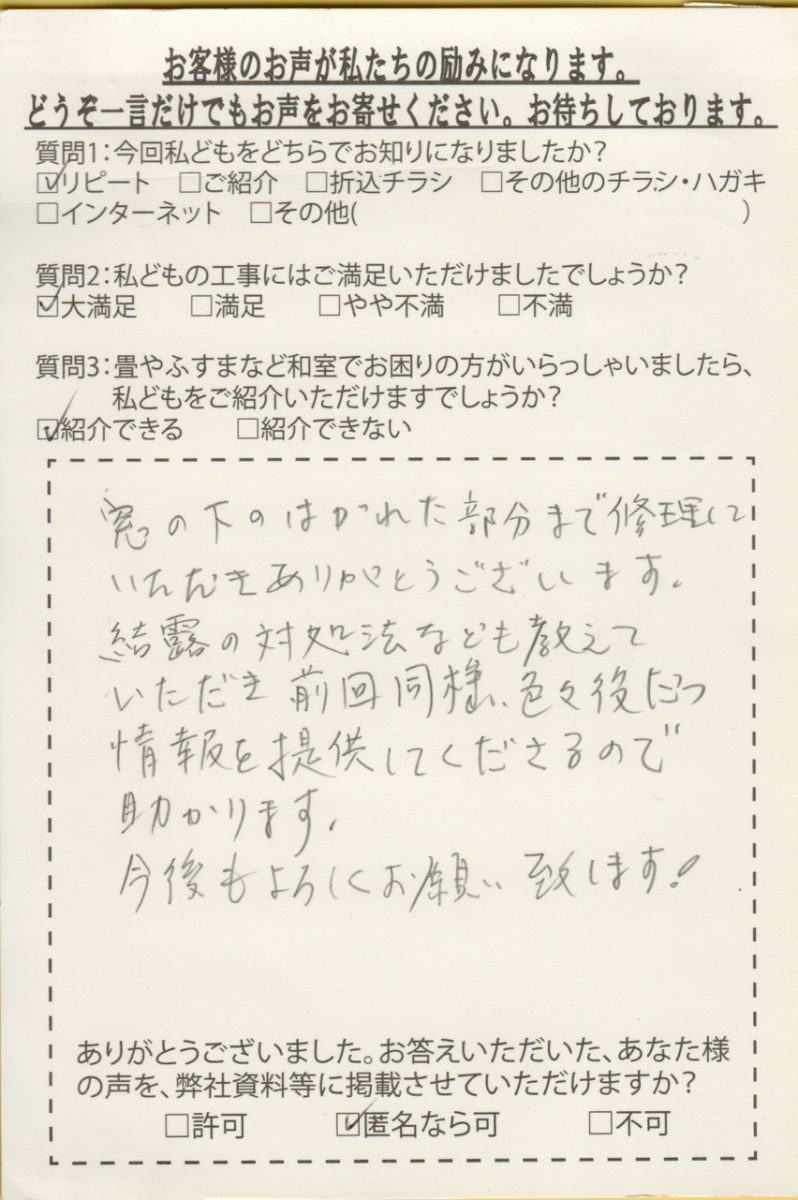 お客様のお声が私たちの励みになります。
どうぞ一言だけでもお声をお寄せください。お待ちしております。
質問1：今回私どもをどちらでお知りになりましたか？
☑リピート　□ご紹介　□折込チラシ　□その他のチラシ・ハガキ
□インターネット　□その他(　　　　　　　　　　)
質問2：私どもの工事にはご満足いただけましたでしょうか？
☑大満足　□満足　□やや不満　□不満
質問3：畳やふすまなど和室でお困りの方がいらっしゃいましたら、
私どもをご紹介いただけますでしょうか？
☑紹介できる　□紹介できない
窓の下のはがれた部分まで修理して
いただきありがとうございます。
結露の対処法なども教えて
いただき前回同様、色々役だつ
情報を提供してくださるので
助かります。
今後もよろしくお願い致します!
ありがとうございました。お答えいただいた、あなた様
の声を、弊社資料等に掲載させていただけますか？
□許可　☑匿名なら可　□不可